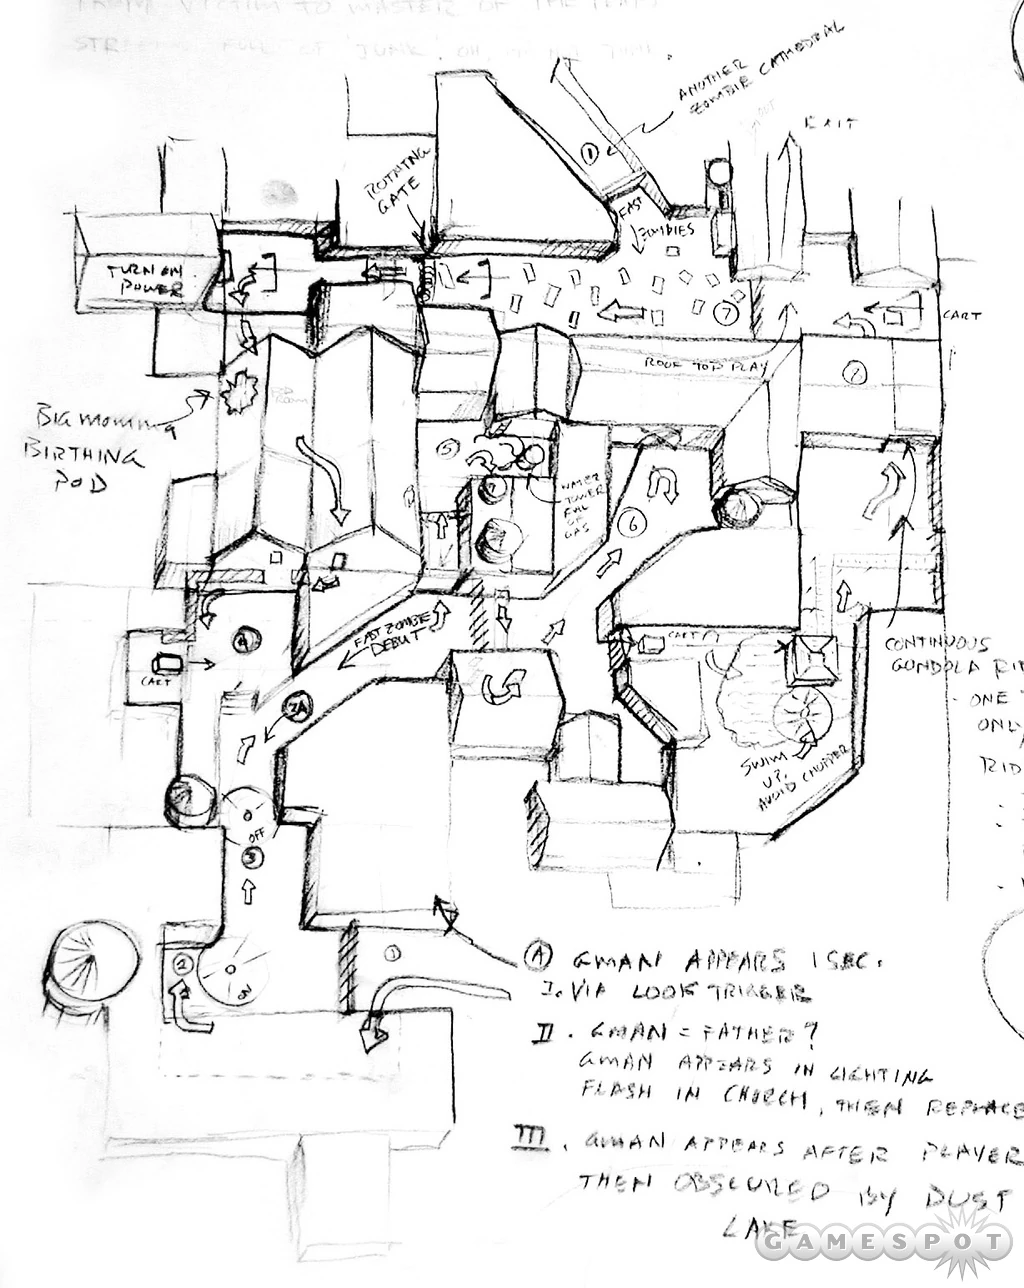 FROM VICTIM TO MASTER OF THE
FULL OF "JUNK".
ANOTHER
ZOMBIE CATHEDRAL
EXIT
1
ROTATING
GATE
FAST
ZOMBIES
TURN ON
POWER
7
CART
ROOF TOP PLAY
BIG MOMMA
BIRTHING
POD
5
WATER
TOWER
FULL
OF
GAS
6
FAST ZOMBIE
DEBUT
4
CART
CART
CONTINUOUS
GONDOLA
- ONE
ONLY
3A
SWIM
UP,
AVOID CHOPPER
OFF
3
2
ON
1
A GMAN APPEARS 1 SEC.
I. VIA LOOK TRIGGER
II. GMAN = FATHER?
GMAN APPEARS IN LIGHTING
FLASH IN CHURCH, THEN REPLACE
III. GMAN APPEARS AFTER PLAYER
THEN OBSCURED BY DUST
LAKE
GAMESPOT